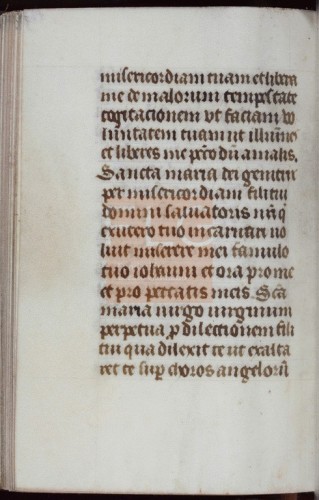 misericordiam tuam et libera
me de malorum tempestate
cogitacionem vt faciam vo
luntatem tuam ut illumines
et liberes me pet̄o dn̄a malis.
Sancta maria dei genitrix
per misericordiam filii tui
domini saluatoris nr̄i q̄
ex utero tuo incarnari uo
luit miserere mei famulo
tuo iohanni et ora pro me
et pro peccatis meis. Sc̄a
maria uirgo uirginum
perpetua ꝑ dilectionem fili
tui qua dilexit te ut exalta
ret te sup̄ choros angelorū